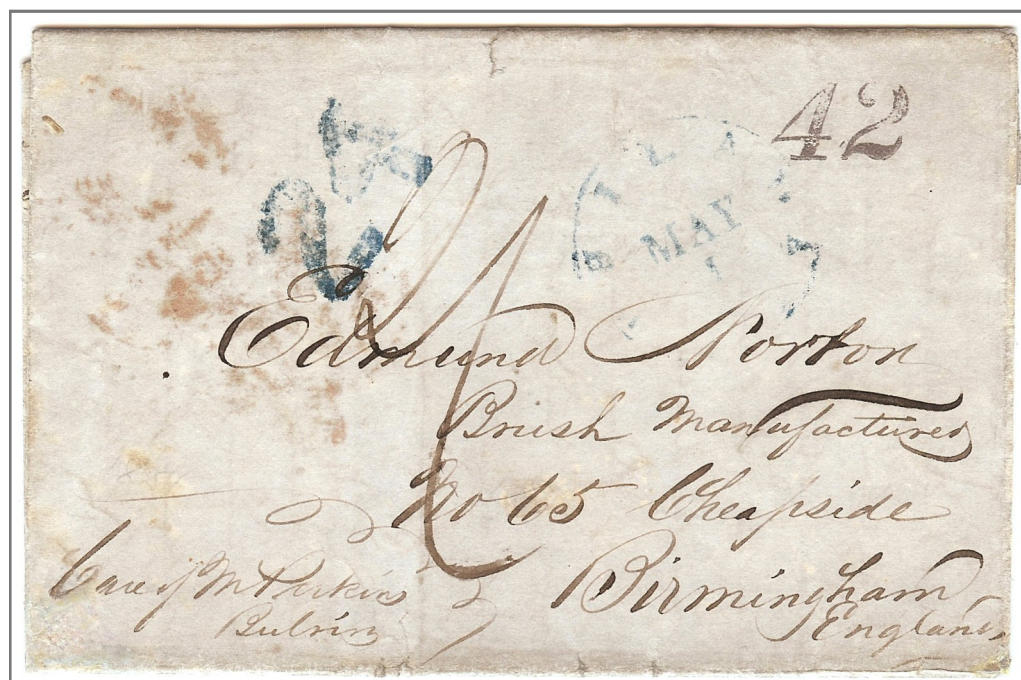 42
24
PHILA
MAY
1
Edmund Norton
Brush Manufacturer
No 65 Cheapside
Birmingham
England
Care of M Perkins